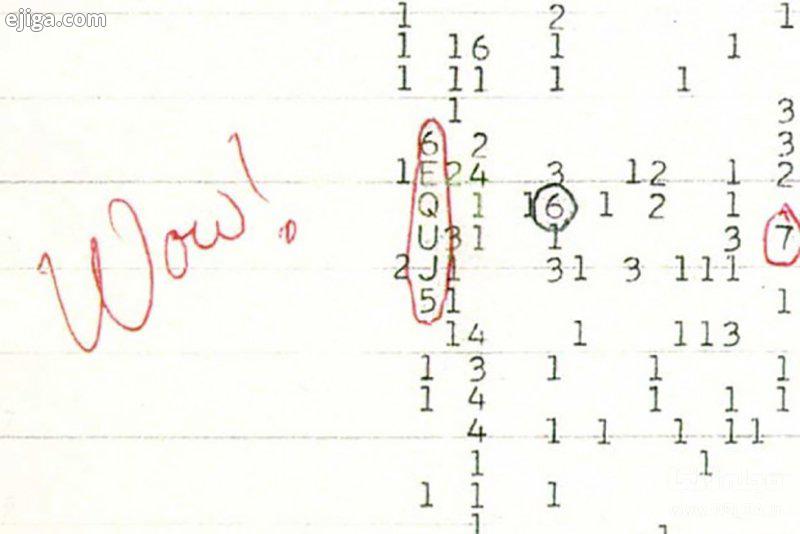 ejiga.com
1 2 1
1 16 1 1
1 11 1 1
1 3
6 2 3
1 E 24 3 12 1 2
Q 1 1 6 1 2 1
U 31 1 3 7
2 J 1 31 3 111
5 1 1
14 1 113
1 3 1 1 1
1 4 1 1 1
4 1 1 1 11
1 1
1 1 1
1 1
Wow!